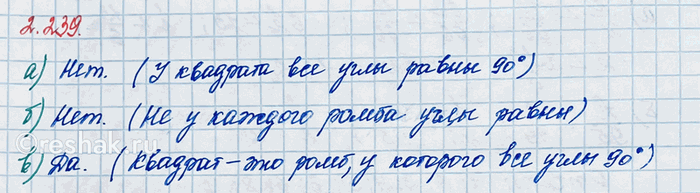 2.239.
а) Нет. (У квадрата все углы равны 90°)
б) Нет. (Не у каждого ромба углы равны)
в) Да. (Квадрат – это ромб, у которого все углы 90°)
reshak.ru